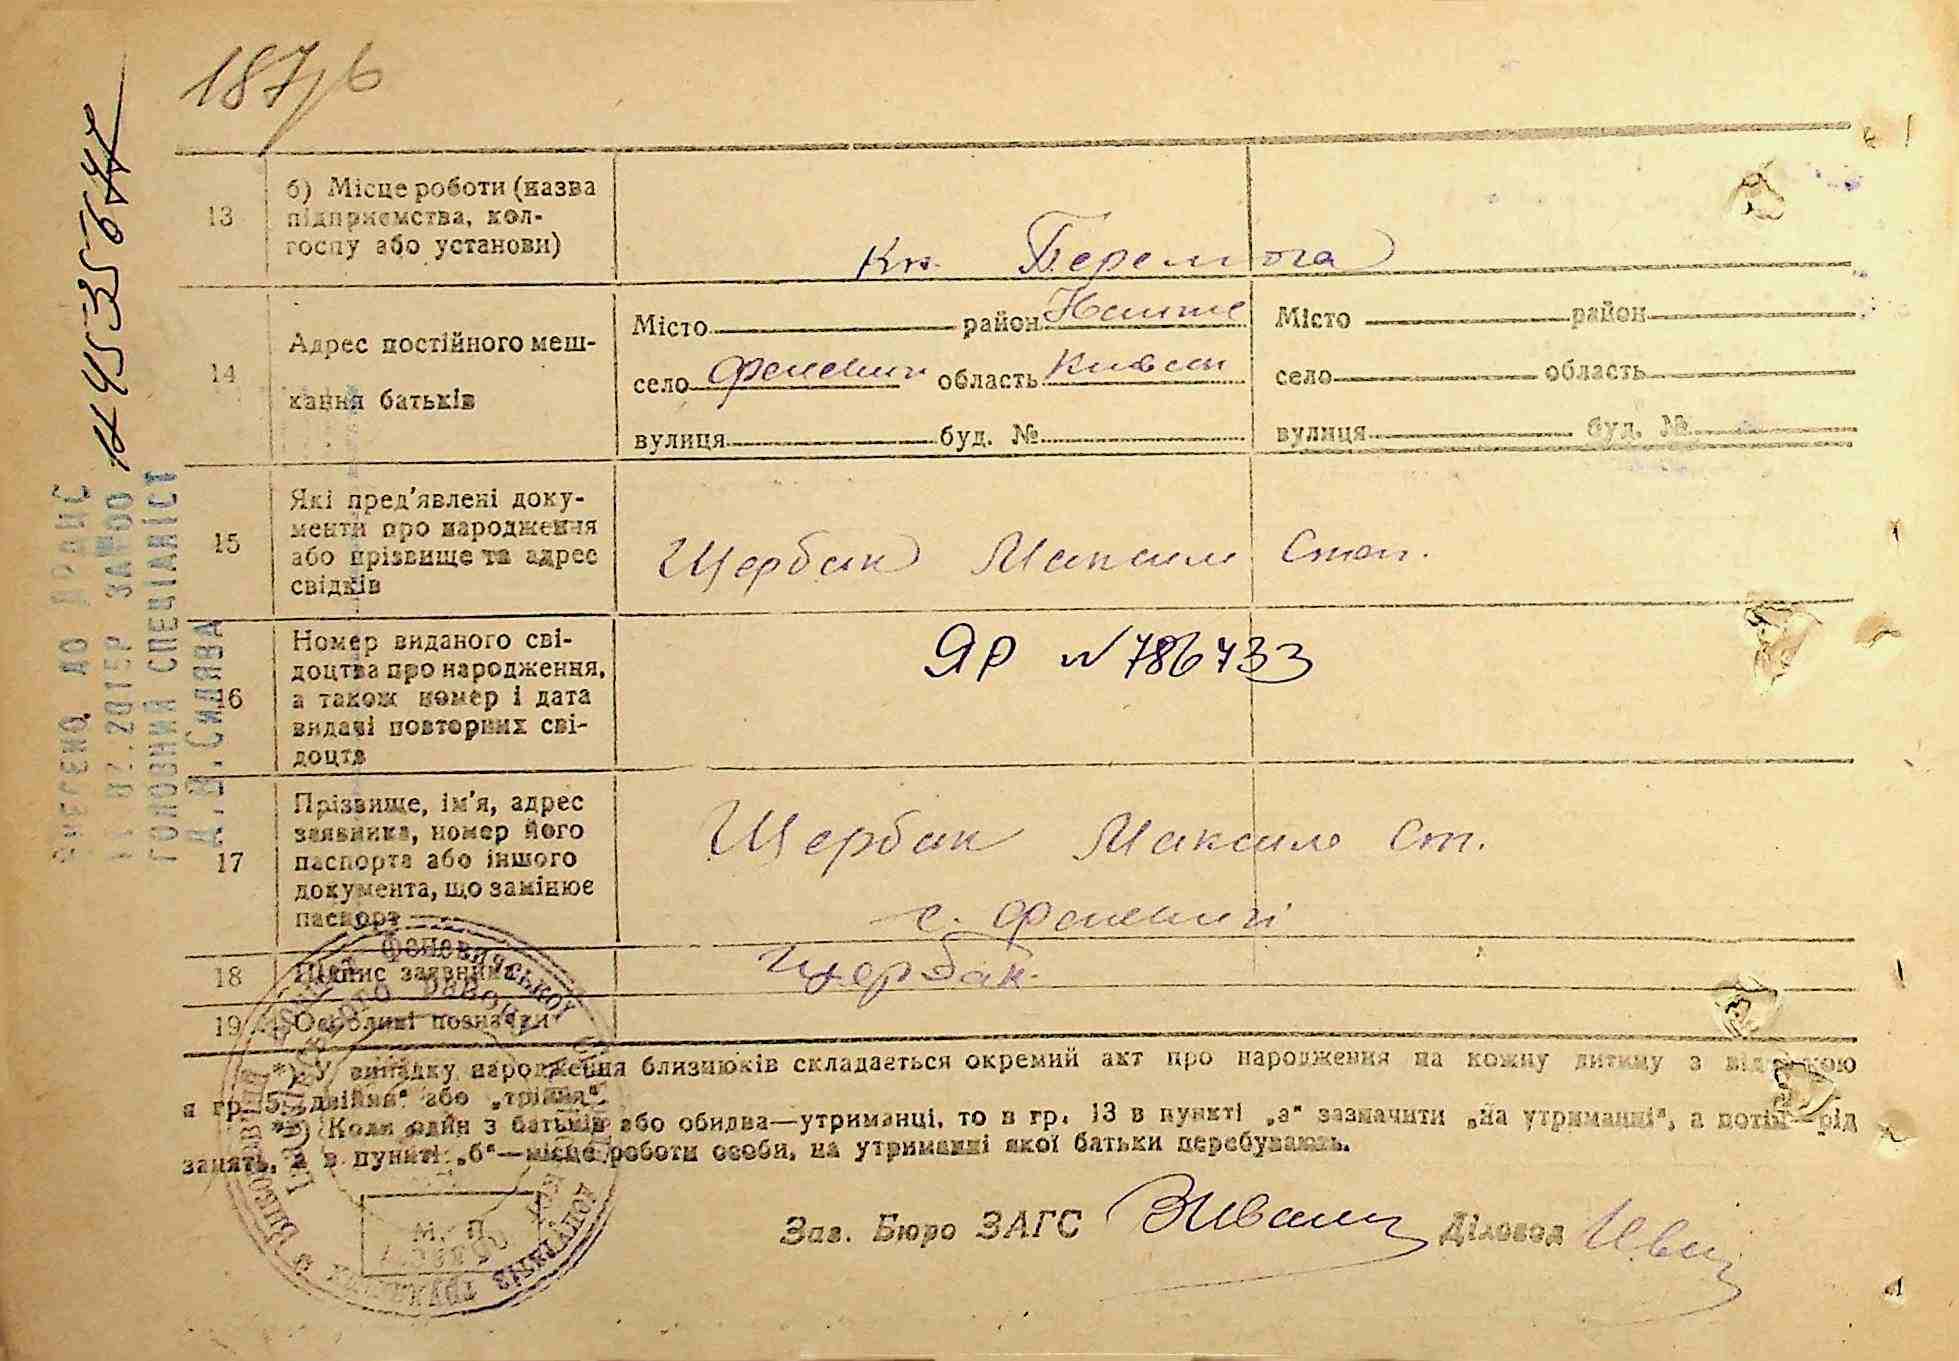 187/в
13
б) Місце роботи (назва
підприємства, кол-
госпу або установи)
Перемога
14
Адрес постійного меш-
кання батьків
Місто район
село область
вулиця буд. №
Місто район
село область
вулиця буд. №
15
Які пред'явлені доку-
менти про народження
або прізвище та адрес
свідків
Щербак Максим Степ.
16
Номер виданого сві-
доцтва про народження,
а також номер і дата
видачі повторних сві-
доцтв
ЯР №786433
17
Прізвище, ім'я, адрес
заявника, номер його
паспорта або іншого
документа, що замінює
паспорт
Щербак Максим Ст.
с. Феневичі
18
Підпис заявника
Щербак.
19
Особливі позначки
*) У випадку народження близнюків складається окремий акт про народження на кожну дитину з відміткою
в гр. 5 „двійня" або „трійня".
**) Коли один з батьків або обидва—утриманці, то в гр. 13 в пункті „а" зазначити „на утриманні", а потім—рід
занять, а в пункті „б"—місце роботи особи, на утриманні якої батьки перебувають.
Зав. Бюро ЗАГС Діловод
М. П.
ВНЕСЕНО ДО ДРАЦС
ЗА №00
ГОЛОВНИЙ СПЕЦІАЛІСТ
СИЛЯВА